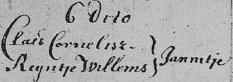 6 Dito
Claes Cornelisz
Reyntje Willems } Jannitje